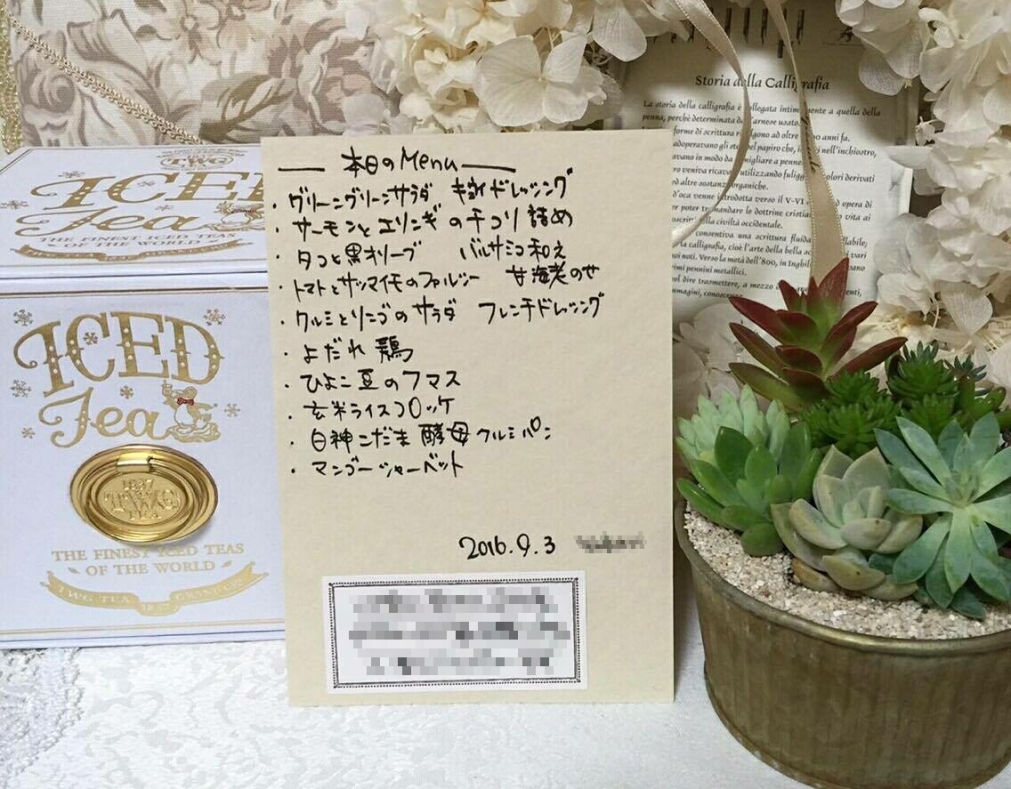 TWG
ICED
Tea
THE FINEST ICED TEAS
OF THE WORLD
ICED
Tea
1837
TWG
TEA
THE FINEST ICED TEAS
OF THE WORLD
TWG TEA 1837
本日のMenu
・グリーングリーンサラダ ドレッシング
・サーモンとエリンギのチコリ詰め
・タコと黒オリーブ バルサミコ和え
・トマトとサツマイモのファルシー 甘海老のせ
・クルミとリンゴのサラダ フレンチドレッシング
・よだれ鶏
・ひよこ豆のフマス
・玄米ライスコロッケ
・白神こだま酵母クルミパン
・マンゴーシャーベット
2016.9.3
Storia della Calligrafia
La storia della calligrafia è collegata intimamente a quella della
penna, perchè determinata da
forme di scrittura risalgono ad oltre anni fa.
adoperavano gli papiro che, nell'inchiostro,
in modo da a penne
riceva utilizzando colori derivati
ed altre sostanze organiche.
d.C venne introdotta verso il V-VI opera di
per tramandare le dottrine vita ai
civiltà occidentale.
consentiva una scrittura fluida
la calligrafia, cioè l'arte della bella
Verso la metà dell'800, in
primi pennini metallici.
dire trasmettere, a mezzo
immagini,